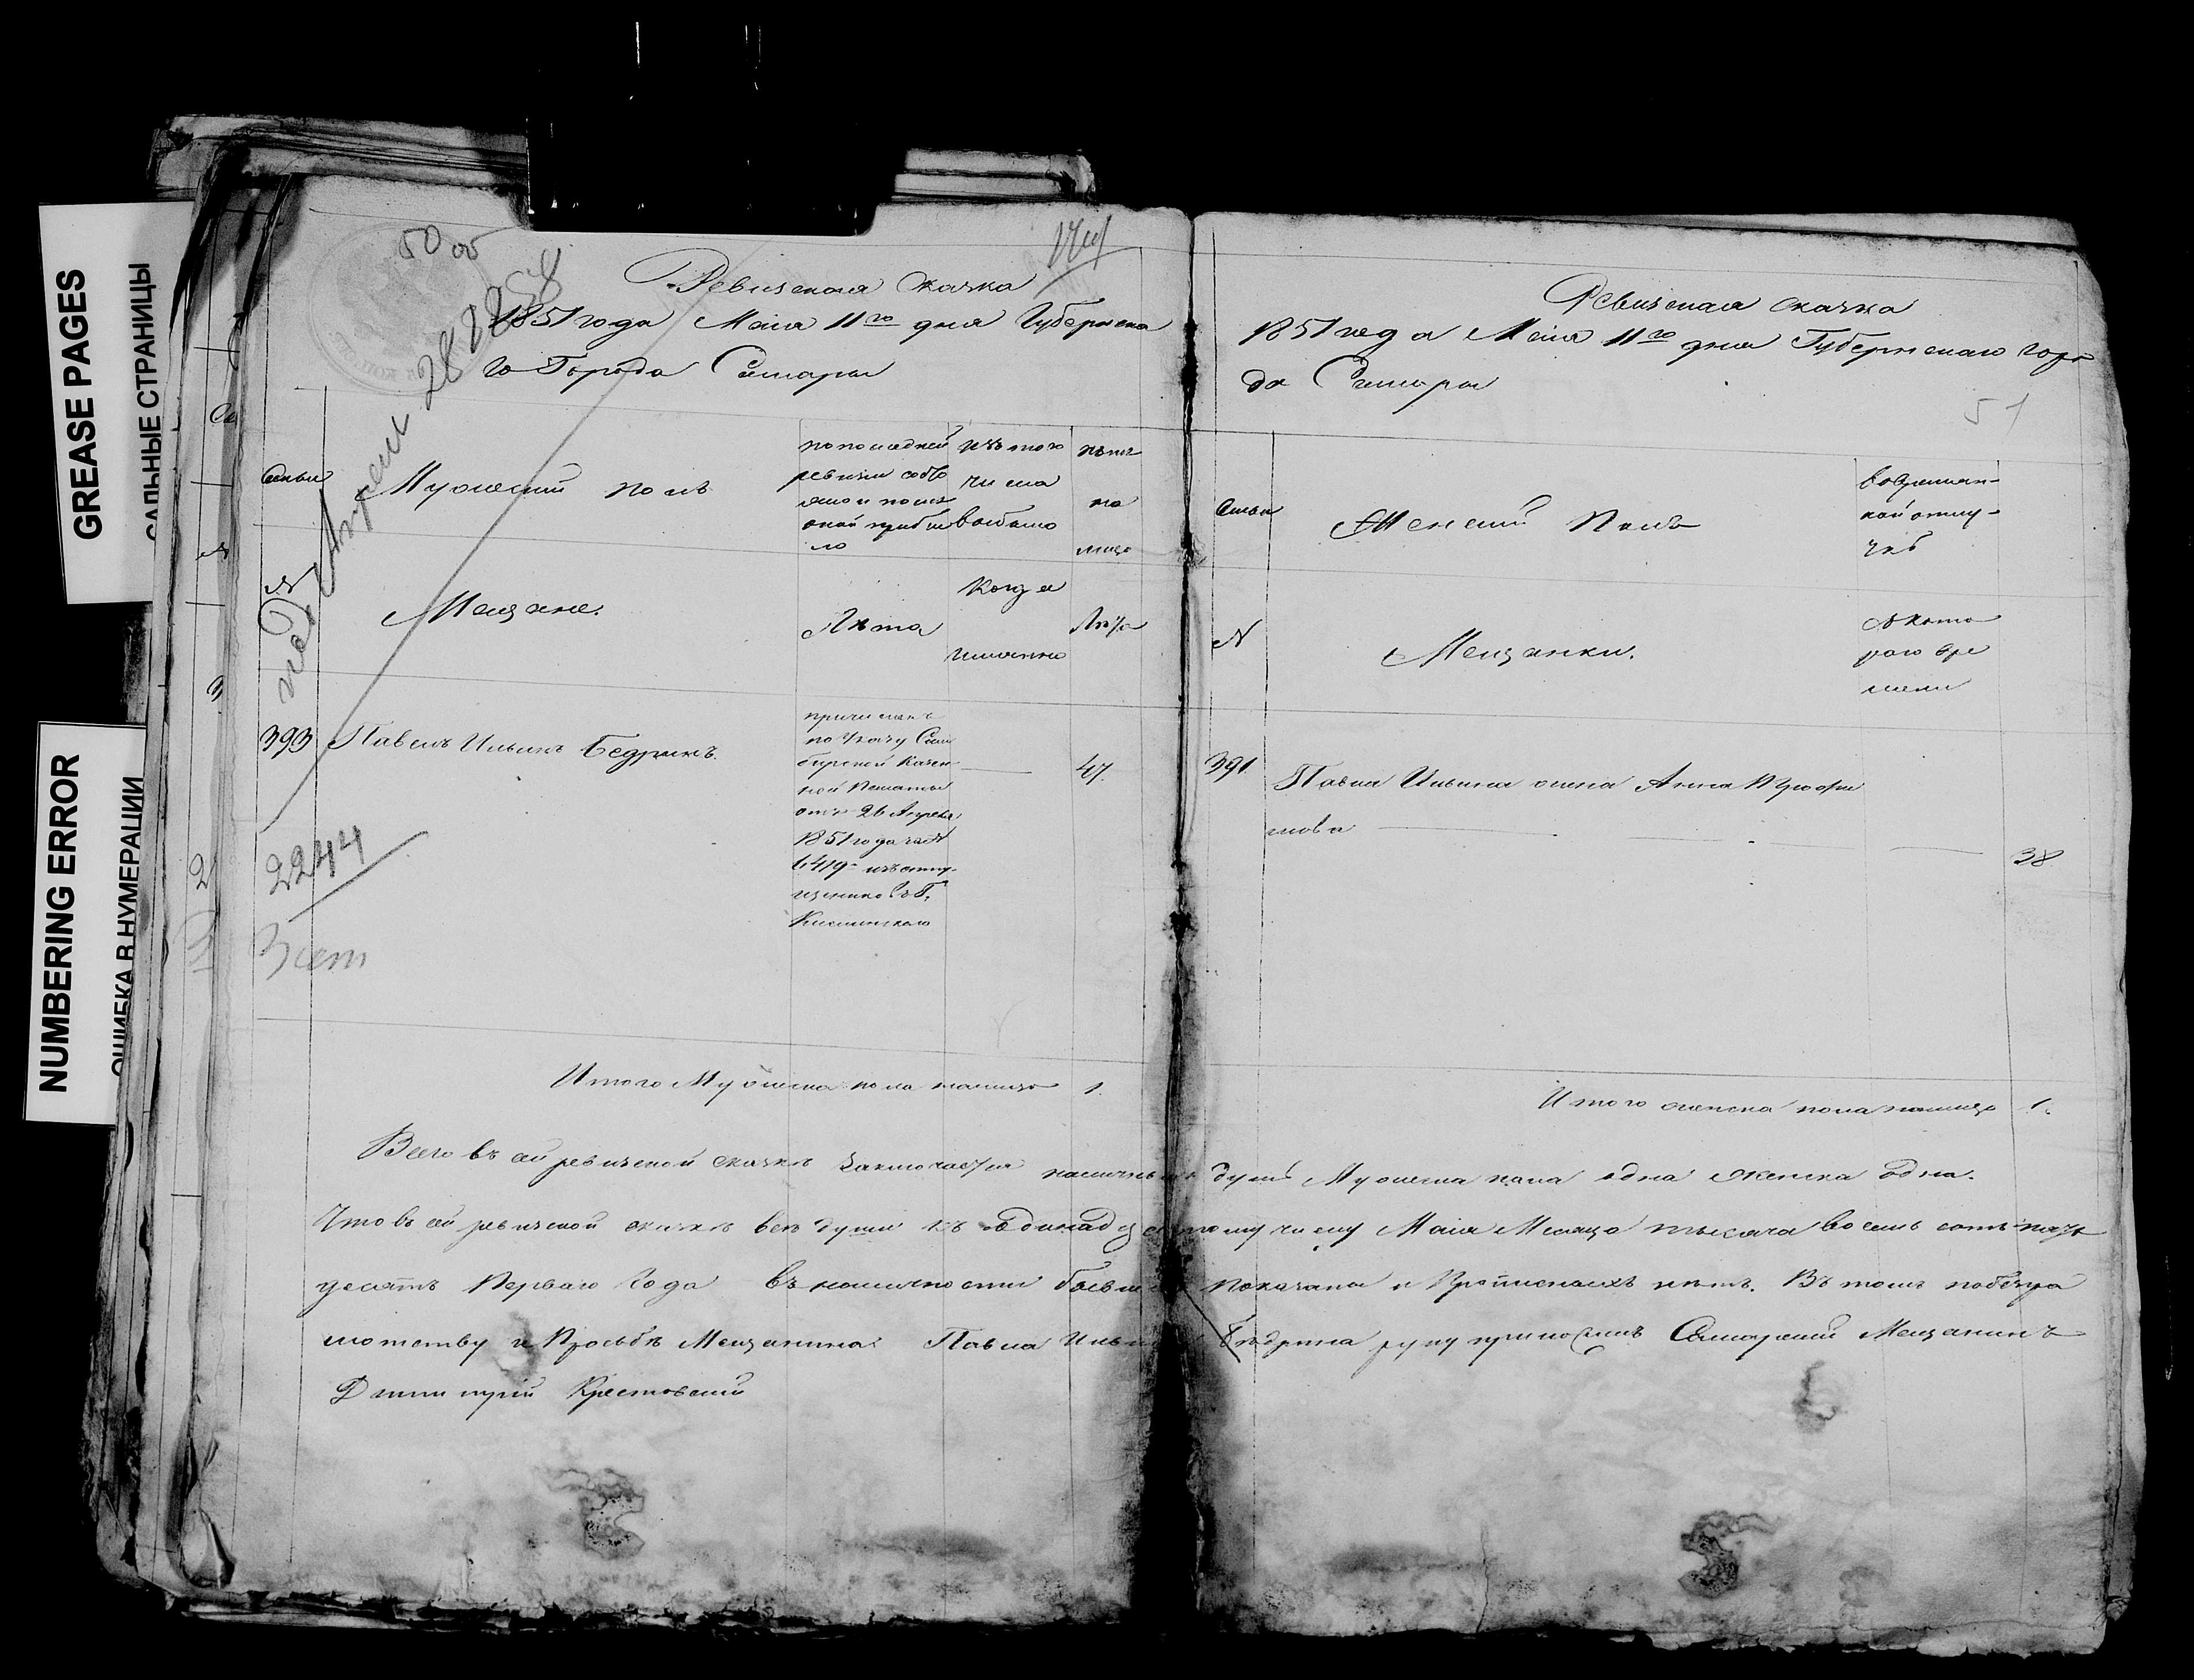 GREASE PAGES
САЛЬНЫЕ СТРАНИЦЫ
NUMBERING ERROR
ОШИБКА В НУМЕРАЦИИ
50 об
Ревизская сказка
1851 года Маія 11го дня Губернска
го Города Самары
Семьи
Мужеский полъ
по последней
ревизіи состо
яло и после
оной прибы
ло
изъ того
числа
выбыло
ныне
на
лицо
№
Мещане.
Лѣта
Когда
именно
Лѣта
393
Павелъ Ильинъ Бедринъ.
причисленъ
по Указу Сим
бирской Казен
ной Палаты
отъ 26 Апреля
1851 года за №
6419 изъ отпу-
щенниковъ Г.
47.
2244
3 сем
Итого Мужеска пола налицо 1.
Ревизская сказка
1851 года Маія 11го дня Губернскаго горо
да Самары
51
Семьи
Женский Полъ
во времен-
ной отлу-
чкѣ
№
Мещанки.
съ кото
раго вре
мени
391.
Павла Ильина жена Анна
38
Итого женска пола налицо 1.
Всего въ сей ревизской сказкѣ заключается наличныхъ душъ Мужеска пола одна Женска одна.
Что въ сей ревизской сказкѣ все души къ одинадцатому числу Маія Месяца тысяча восемь сотъ пять
десятъ Перваго Года въ наличности бывшіе показаны и прописныхъ нѣтъ. Въ томъ по безгра
мотству и Прозьбѣ Мещанина Павла Ильина Бедрина руку приложилъ Самарский Мещанинъ
Димитрій Крестовский